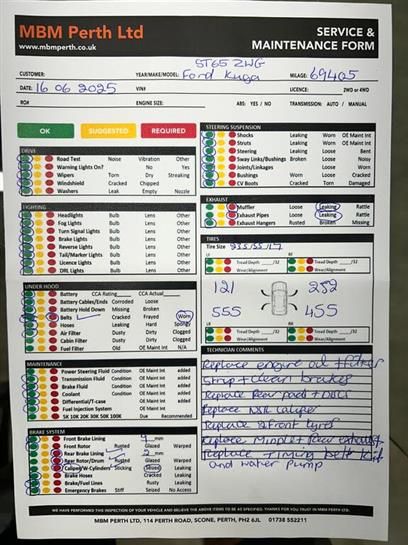 MBM Perth Ltd
www.mbmperth.co.uk
SERVICE &
MAINTENANCE FORM
ST65 ZWG
CUSTOMER: YEAR/MAKE/MODEL: Ford Kuga MILAGE: 69405
DATE: 16 06 2025 VIN# LICENCE: 2WD or 4WD
RO# ENGINE SIZE: ABS: YES / NO TRANSMISSION: AUTO / MANUAL
OK SUGGESTED REQUIRED
DRIVE
Road Test Noise Vibration Other
Warning Lights On? No Yes
Wipers Torn Dry Streaking
Windshield Cracked Chipped
Washers Leak Empty Nozzle
LIGHTING
Headlights Bulb Lens Other
Fog Lights Bulb Lens Other
Turn Signal Lights Bulb Lens Other
Brake Lights Bulb Lens Other
Reverse Lights Bulb Lens Other
Tail/Marker Lights Bulb Lens Other
Licence Lights Bulb Lens Other
DRL Lights Bulb Lens Other
UNDER HOOD
Battery CCA Rating CCA Actual
Battery Cables/Ends Corroded Loose
Battery Hold Down Missing Broken
Belts Cracked Frayed Worn
Hoses Leaking Hard Spongy
Air Filter Dusty Dirty Clogged
Cabin Filter Dusty Dirty Clogged
Fuel Filter Old OE Maint Int N/A
MAINTENANCE
Power Steering Fluid Condition OE Maint Int added
Transmission Fluid Condition OE Maint Int added
Brake Fluid Condition OE Maint Int added
Coolant Condition OE Maint Int added
Differential/T-case OE Maint Int added
Fuel Injection System OE Maint Int
5K 10K 20K 30K 50K 100K Due Recommended
BRAKE SYSTEM
Front Brake Lining 9 mm
Front Rotor Rusted Glazed Warped
Rear Brake Lining 2 mm
Rear Rotor/Drum Rusted Glazed Warped
Caliper/W-Cylinders Sticking Seized Leaking
Brake Hoses Cracked Leaking
Brake/Fuel Lines Rusty Leaking
Emergency Brakes Stiff Seized No Access
STEERING SUSPENSION
Shocks Leaking Worn OE Maint Int
Struts Leaking Worn OE Maint Int
Steering Leaking Loose Bent
Sway Links/Bushings Broken Loose Noisy
Joints/Linkages Loose Worn
Bushings Worn Loose Cracked
CV Boots Cracked Torn Damaged
EXHAUST
Muffler Loose Leaking Rattle
Exhaust Pipes Loose Leaking Rattle
Exhaust Hangers Rusted Broken Missing
TIRES
Tire Size 235/55/17
LF RF
Tread Depth /32 Tread Depth /32
Wear/Alignment Wear/Alignment
121 252
555 455
LR RR
Tread Depth /32 Tread Depth /32
Wear/Alignment Wear/Alignment
TECHNICIAN COMMENTS
Replace engine oil + filter
Strip + clean brakes
Replace Rear pads + Discs
Replace NSR caliper
Replace 2 front tyres
Replace Middle + Rear exhaust
Replace Timing belt kit
and water pump
WE HAVE PERFORMED THIS INSPECTION OF YOUR VEHICLE AND BELIEVE THE ABOVE ITEMS TO BE AS STATED. THANKS FOR GIVING US THE OPPORTUNITY TO SERVE YOU.
MBM PERTH LTD, 114 PERTH ROAD, SCONE, PERTH, PH2 6JL 01738 552211